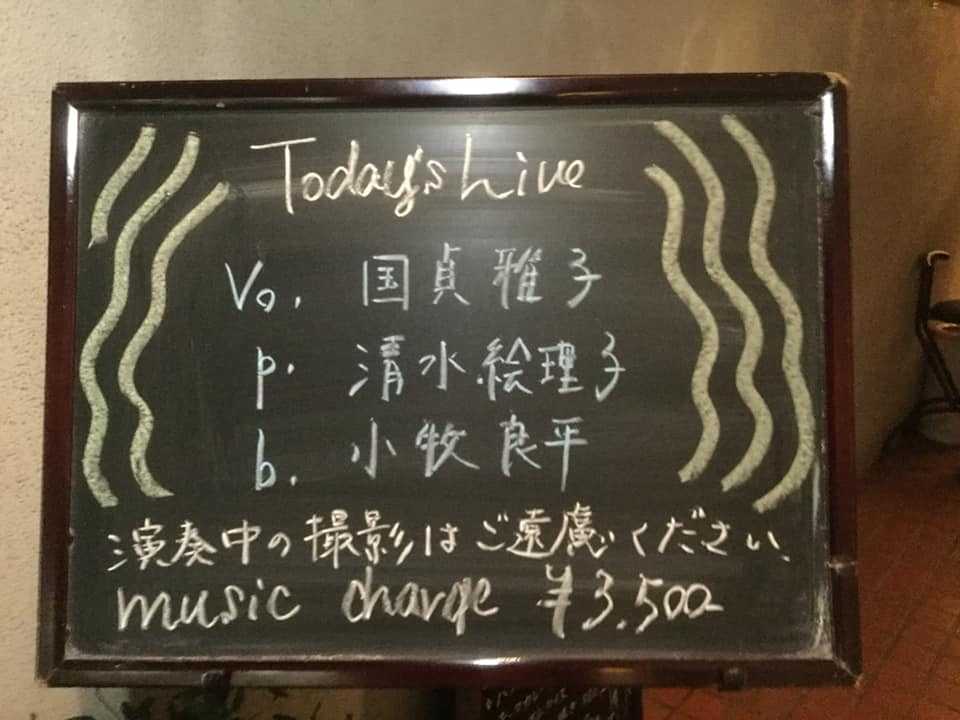 Today's Live
Vo. 国貞雅子
p. 清水絵理子
b. 小牧良平
演奏中の撮影はご遠慮ください.
music charge ¥3,500-